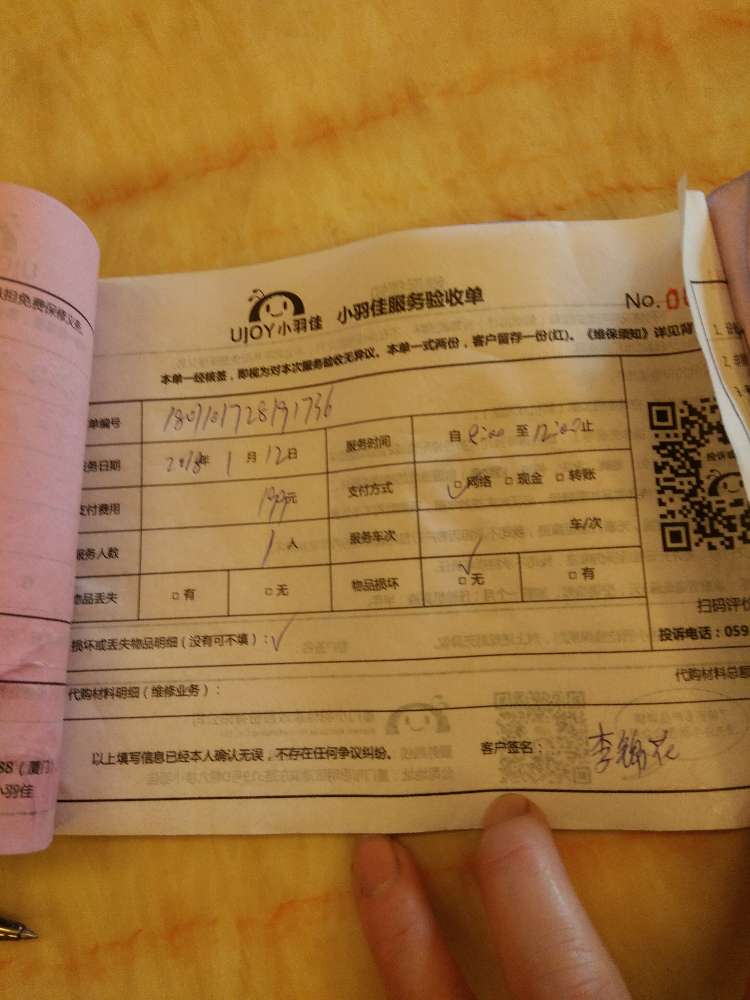 担免费保修义务
UJOY小羽佳 小羽佳服务验收单 No.
本单一经核签，即视为对本次服务验收无异议。本单一式两份，客户留存一份(红)。《维保须知》详见背
单编号 1801101728191736
务日期 2018年 1月 12日 服务时间 自 8:00 至 12:00 止
支付费用 199元 支付方式 ☑网络 □现金 □转账
服务人数 1人 服务车次 车/次
物品丢失 □有 □无 物品损坏 ☑无 □有
扫码评价
损坏或丢失物品明细（没有可不填）：✓ 投诉电话：059
代购材料明细（维修业务）： 代购材料总额
88（厦门）
小羽佳
以上填写信息已经本人确认无误，不存在任何争议纠纷。 客户签名：李锦花